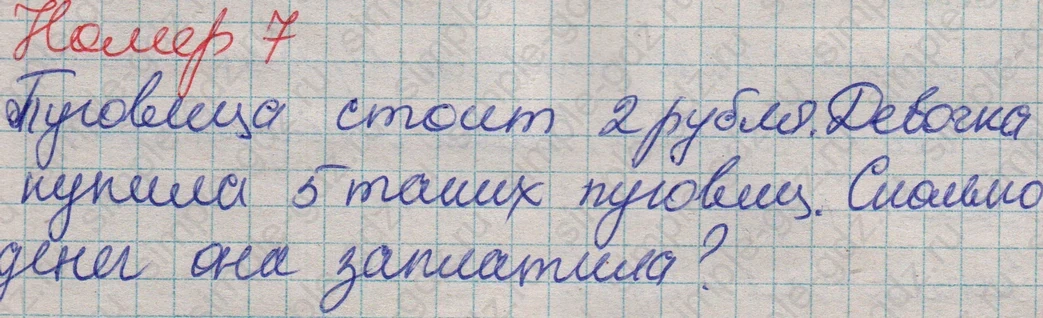 Номер 7
Пуговица стоит 2 рубля. Девочка
купила 5 таких пуговиц. Сколько
денег она заплатила?